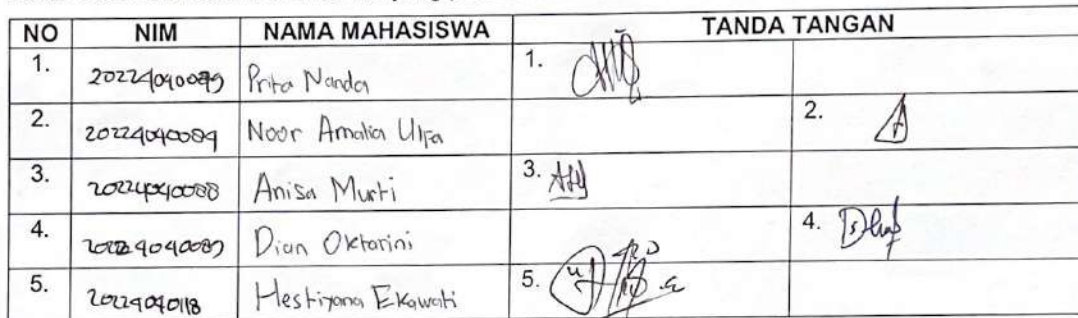 NO NIM NAMA MAHASISWA TANDA TANGAN
1. Prita Nanda 1.
2. 20224040089 Noor Amalia Ulfa 2.
3. 20224040088 Anisa Murti 3.
4. Dian Oktarini 4.
5. 20224040118 Hestiyana Ekawati 5.